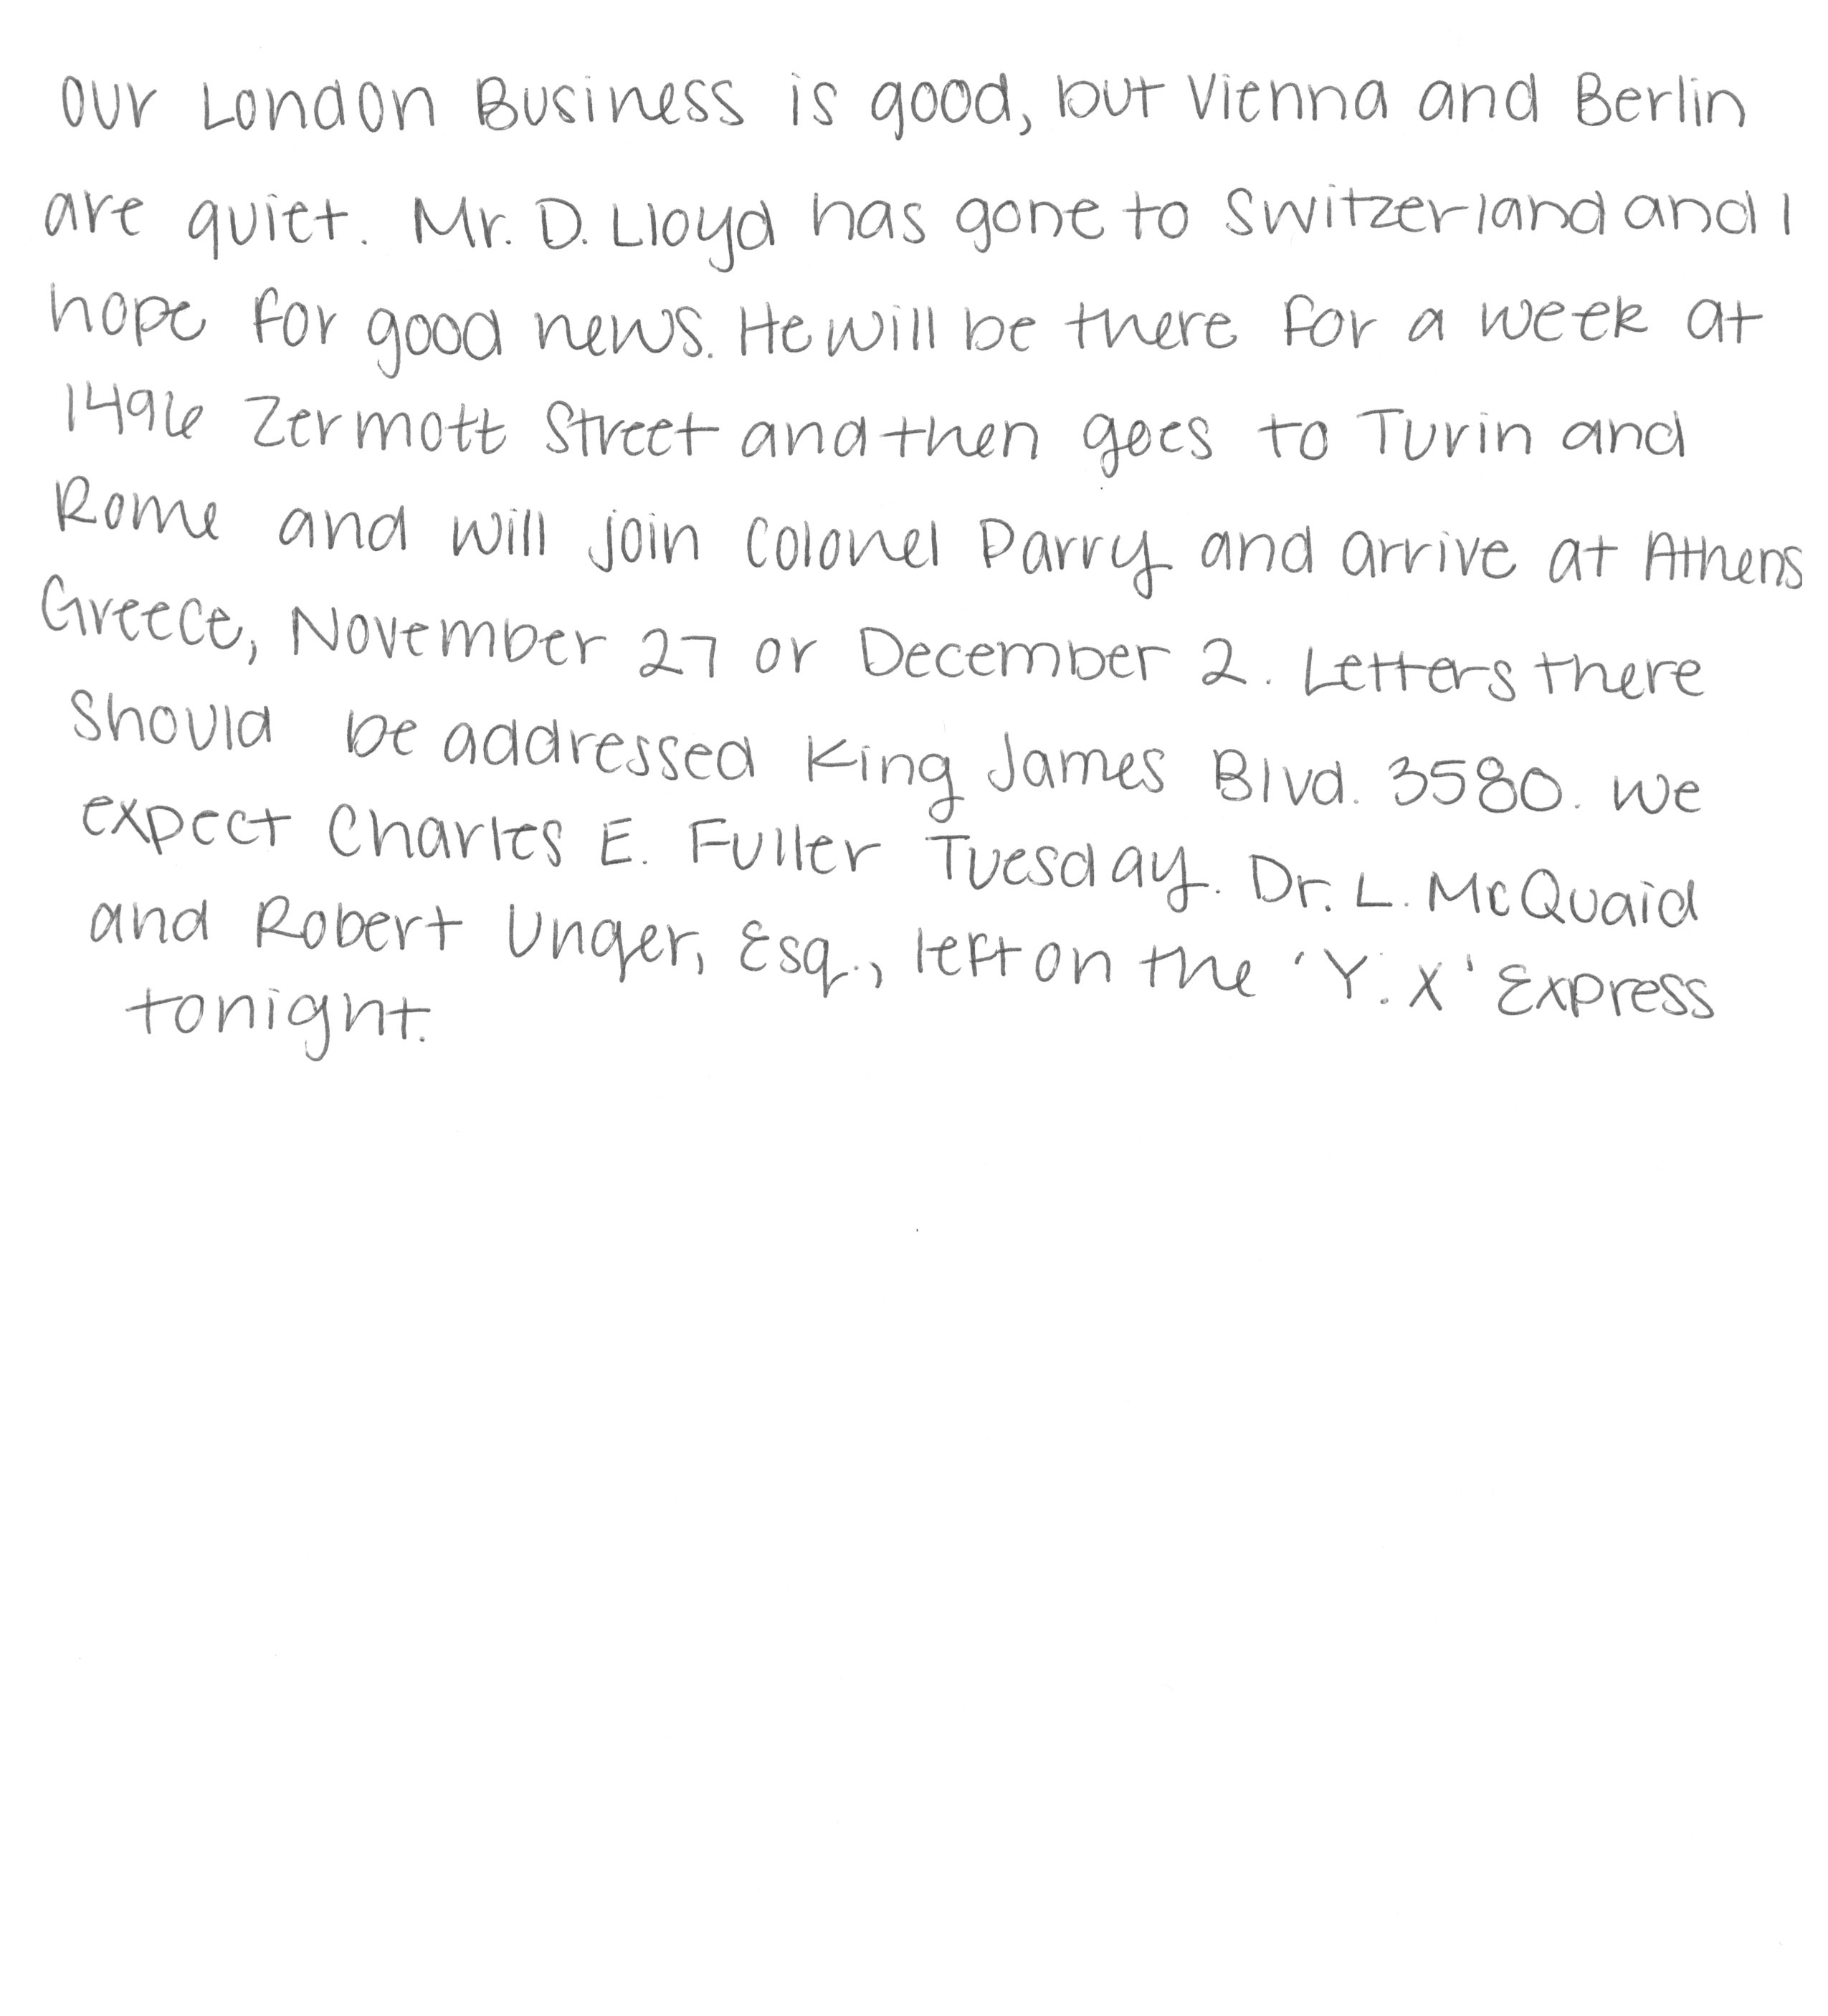 Our London Business is good, but Vienna and Berlin
are quiet. Mr. D. Lloyd has gone to Switzerland and I
hope for good news. He will be there for a week at
1496 Zermott Street and then goes to Turin and
Rome and will join Colonel Parry and arrive at Athens
Greece, November 27 or December 2. Letters there
should be addressed King James Blvd. 3580. We
expect Charles E. Fuller Tuesday. Dr. L. McQuaid
and Robert Unger, Esq., left on the 'Y.X' Express
tonight.